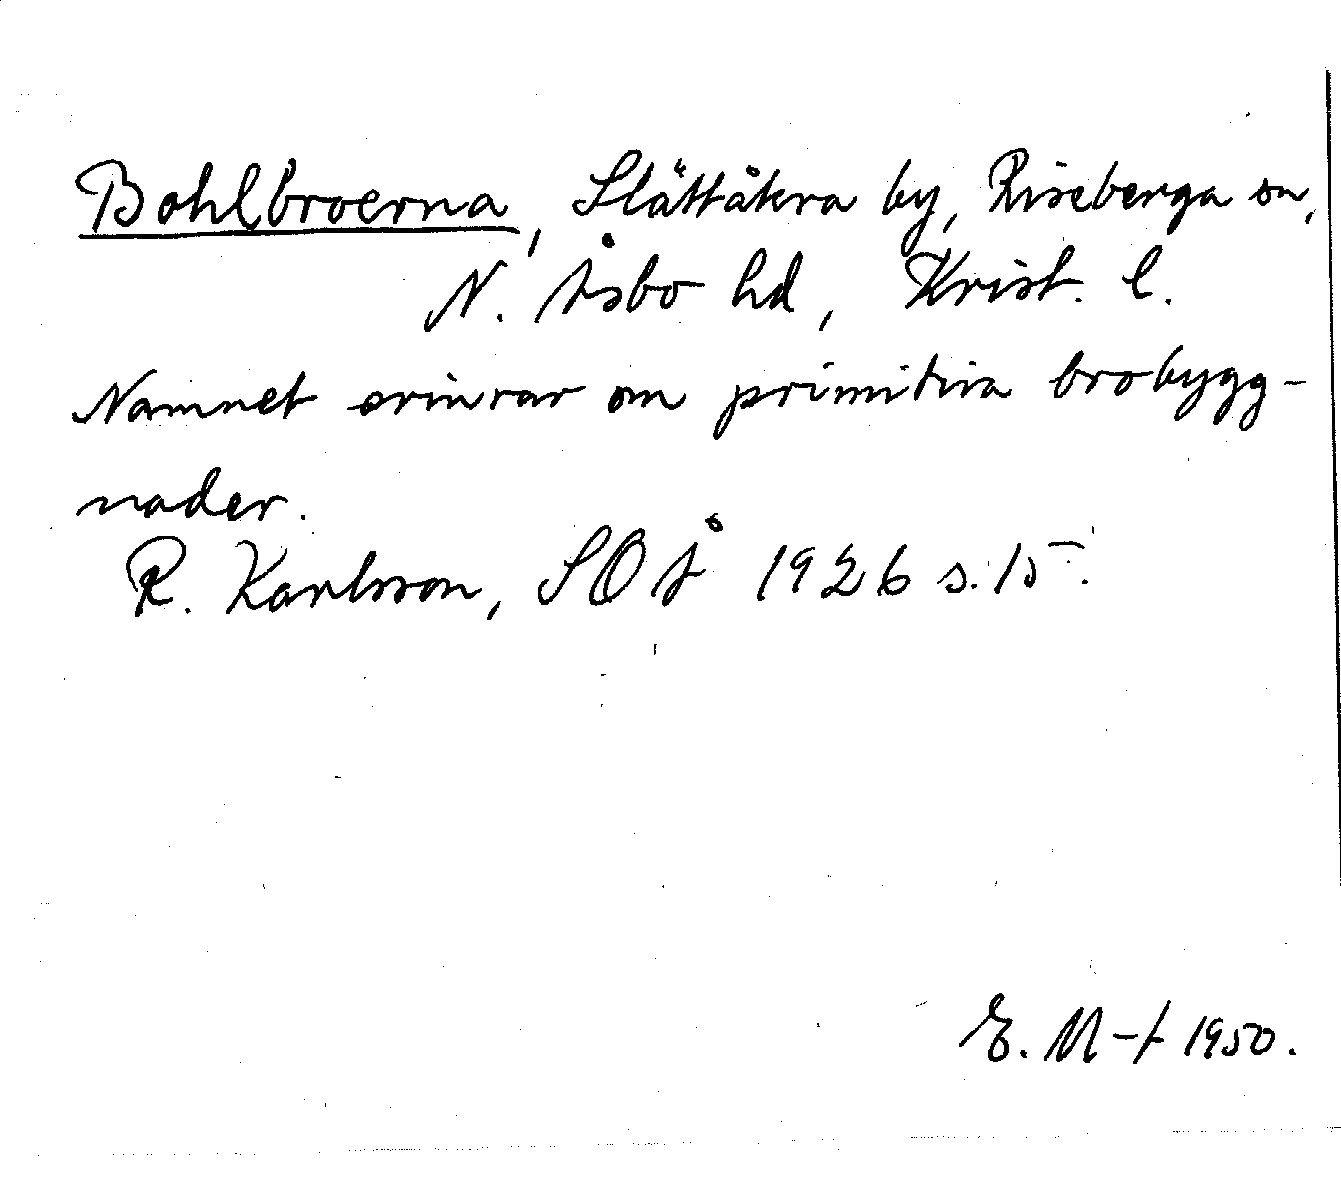 Bohlbroerna, Slättåkra by, Riseberga sn,
N. Åsbo hd, Krist. l.
Namnet erinrar om primitiva brobygg-
nader.
R. Karlsson, SOÅ 1926 s. 15.
E. M-t 1950.